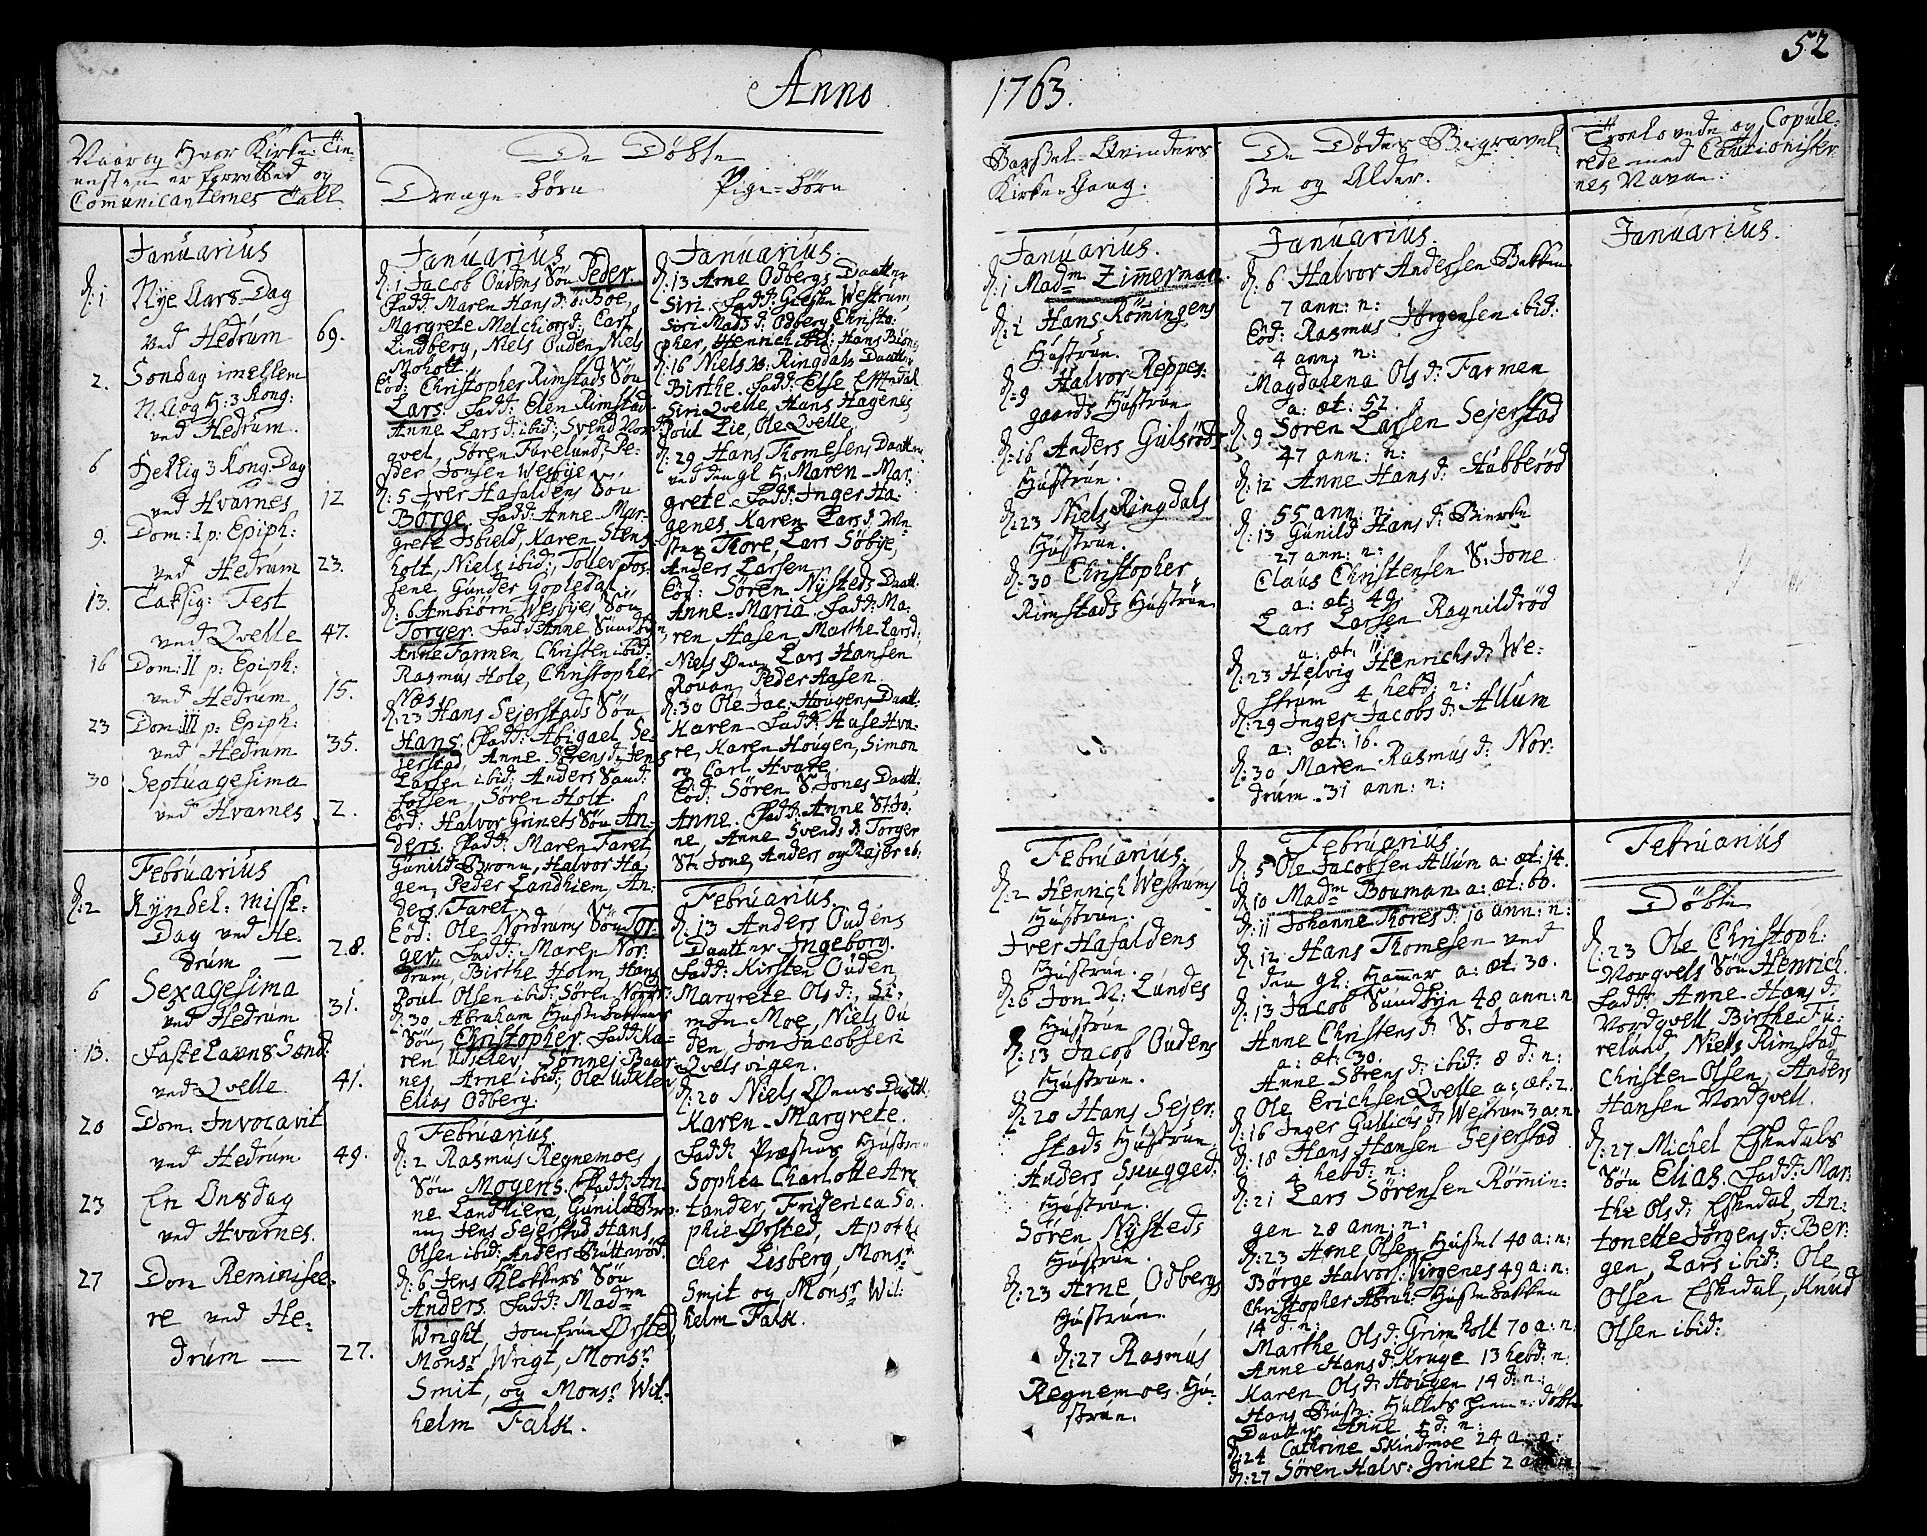 Anno
1763.
52
Naar og Hvor Kirke-Tie-
nesten er forrettet og
Comunicanternes Tall.
De Döbte
Drenge-börn
Pige-börn
Barsel-Qvinders
Kirke-Gang.
De Dödes Begravel-
se og Alder.
Trolovede og Copule-
rede med Cautionister-
nes Navne.
Januarius
d: 1 Nye Aars Dag
ved Hedrum 69.
2. Söndag imellem
N. A og H: 3 Kong:
ved Hedrum.
6 Hellig 3 Kong. Dag
ved Hvarnes 12
9. Dom: I p: Epiph:
ved Hedrum 23.
13. Taksig: Fest
ved Qvelle 47.
16 Dom: II p: Epiph:
ved Hedrum 15.
23 Dom: III p: Epiph:
ved Hedrum 35.
30 Septuagesima
ved Hvarnes 2.
Februarius
d: 2 Kyndel-Misse-
Dag ved He-
drum — 28.
6 Sexagesima
ved Hedrum 31.
13. Faste Lavns Sönd:
ved Qvelle 41.
20 Dom: Invocavit
ved Hedrum 49.
23 En Onsdag
ved Hvarnes.
27 Dom Reminisce-
re ved He-
drum — 27.
Januarius
d: 1 Jacob Oudens Sön Peder.
Fadd: Maren Hans d: Böe,
Margrete Melchiorsd: Carl
Lindberg, Niels Ouden, Niels
Moholt
Eod: Christopher Rimstads Sön
Lars. Fadd: Elen Rimstad
Anne Lars d: ibid; Svend Nord-
qvel, Sören Furelund, Pe-
der Jonsen Wesbye
d: 5 Iver Hafaldens Sön
Börge. Fadd: Anne Mar-
grete Isbield, Karen Stens-
holt, Niels ibid:, Tollev Fos-
sene, Gunder Gopledal
d: 6 Ambiörn Wesbyes Sön
Torger. Fadd Anne Sundbyn
Anne Farmen, Christen ibid:
Rasmus Hole, Christopher
Næs
d: 23 Hans Sejerstads Sön
Hans. Fadd: Abigael Se-
jerstad, Anne Sörens d: Jens
Larsen ibid: Anders Sund
Jossen, Sören Holt.
Eod: Halvor Grinets Sön An-
ders. Fadd: Maren Faret
Gunild Bronn, Halvor Ha-
gen, Peder Landhiem, An-
ders Faret.
Eod: Ole Nordrums Sön Tor-
ger. Fadd: Maren Nor-
drum, Birthe Holm, Hans
Poul Olsen ibid: Sören Nordr:
d: 30 Abraham Husebakkens
Sön, Christopher. Fadd: Ka-
ren Ucklev, Sönnej Baar-
nes, Arne ibid; Ole Ucklev
Elias Odberg:
Februarius
d: 2 Rasmus Regnemoes
Sön Mogens. Fadd: An-
ne Landhiem, Gunild Bron-
nu, Jens Sejerstad Hans
Olsen ibid: Anders Buttæröd.
d: 6 Jens Klokkers Sön
Anders. Fadd: Madm
Wright, Jomfrue Örsted,
Monsr. Wrigt, Monsr.
Smit, og Monsr. Wil-
helm Falsk.
Januarius.
d: 13 Arne Odbergs Daatter
Siri. Fadd: Giertru Westrum
Siri Mads d: Odberg, Christo-
pher, Henrich ibid: Hans Biönnes
d: 16 Niels N: Ringdals Daatter
Birthe. Fadd: Else Eskedal
Siri Qvelle, Hans Hagenes
Poul Lie, Ole Qvelle,
d: 29 Hans Thomesens Daatter
ved den gl H: Maren Mar-
grete. Fadd: Inger Ha-
genes, Karen Lars d: We-
ster Thore, Lars Söbye,
Anders Larsen
Eod: Sören Nysteds Daatt.
Anne-Maria. Fadd: Ma-
ren Aasen, Marthe Larsd:
Niels Öen, Lars Hansen
Rovan, Peder Aasen.
d: 30 Ole Jac: Hougens Daatt.
Karen. Fadd: Aase Hva-
re, Karen Hougen, Simon
og Carl Hvare
Eod: Sören S. Jones Daatt:
Anne. Fadd: Anne St. Jo-
ne, Anne Svends d: Torger
St. Jone, Anders og Rejer ib:
Februarius.
d: 13 Anders Oudens
Daatter Ingeborg.
Fadd: Kirsten Ouden,
Margrete Ols d:, Si-
mon Moe, Niels Ou-
den, Jon Jacobsen
Qvelsvigen.
d: 20 Niels Öens Daatt:
Karen-Margrete.
Fadd: Præstens Hustru
Sophia Charlotte Arc-
tander, Friderica So-
phie Örsted, Apothe-
cher Lisberg, Monsr.
Smit og Monsr. Wil-
helm Falsk.
Januarius.
d: 1 Madm Zimerman.
d: 2 Hans Römingens
Hustrue.
d: 9 Halvor Reppes-
gaards Hustrue
d: 16 Anders Gulsröds
Hustrue.
d: 23 Niels Ringdals
Hustrue.
d: 30 Christopher
Rimstads Hustrue
Februarius.
d: 2 Henrich Westrums
Hustrue.
Iver Hafaldens
Hustrue.
d: 6 Jon N: Lundes
Hustrue
d: 13 Jacob Oudens
Hustrue.
d: 20 Hans Sejer-
stads Hustrue.
Anders Snugged:
Hustrue.
Sören Nysteds
Hustrue.
d: 23 Arne Odbergs
Hustrue.
d: 27 Rasmus
Regnemoes Hu-
strue.
Januarius.
d: 6 Halvor Andersen Bakken
7 ann: n:
Eod: Rasmus Jörgensen ibid:
4 ann: n:
Magdalena Ols d: Farmen
a: æt: 52.
d: 9 Sören Larsen Sejerstad
47 ann: n:
d: 12 Anne Hans d: Hubberöd
55 ann: n:
d: 13 Gunild Hans d: Bierke
27 ann: n:
Claus Christensen S. Jone
a: æt: 49.
Lars Larsen Ragnildröd
a: æt: 11.
d: 23 Helvig Henrichs d: We-
strum 4 hebd: n:
d: 29 Inger Jacobs d: Allum
a: æt: 16.
d: 30 Maren Rasmus d: Nor-
drum. 31 ann: n:
Februarius
d: 5 Ole Jacobsen Allum a: æt: 14.
d: 10 Madm Bouman a: æt: 60.
d: 11 Johanne Thores d: 10 ann: n:
d: 12 Hans Thomesen ved
den gl. Hammer a: æt: 30.
d: 13 Jacob Sundbyn 48 ann: n
Anne Christens d: S. Jone
a: æt: 30.
Anne Sörens d: ibid: 8 d: n:
Ole Erichsen Qvelle a: æt: 2.
d: 16 Inger Gullichs d: Westrum 3 a: n
d: 18 Hans Hansen Sejerstad
4 hebd: n:
d: 21 Lars Sörensen Römin-
gen 28 ann: n:
d: 23 Arne Olsen Hussel 40 a: n:
Börge Halvors: Virgenes 49 a: n:
Christopher Abrah: Husebakken
14 d: n:
Marthe Ols d: Grimholt 70 a: n:
Anne Hans d: Kruge 13 hebd: n:
Karen Ols d: Hougen 14 d: n:
Daatter Anne 5 d: n:
d: 24 Cathrine Skindmoe 24 a: n:
d: 27 Sören Halv: Grinet 2 a: n:
Januarius.
Februarius
Döbte
d: 23 Ole Christoph:
Nordqvels Sön Henrich.
Fadd: Anne Hans d:
Nordqvell Birthe Fu-
relund, Niels Rimstad
Christen Olsen, Anders
Hansen Nordqvell.
d: 27 Michel Eskedals
Sön Elias. Fadd: Mar-
the Ols d: Eskedal, An-
tonette Jörgens d: Ber-
gen, Lars ibid: Ole
Olsen Eskedal, Knud
Olsen ibid: